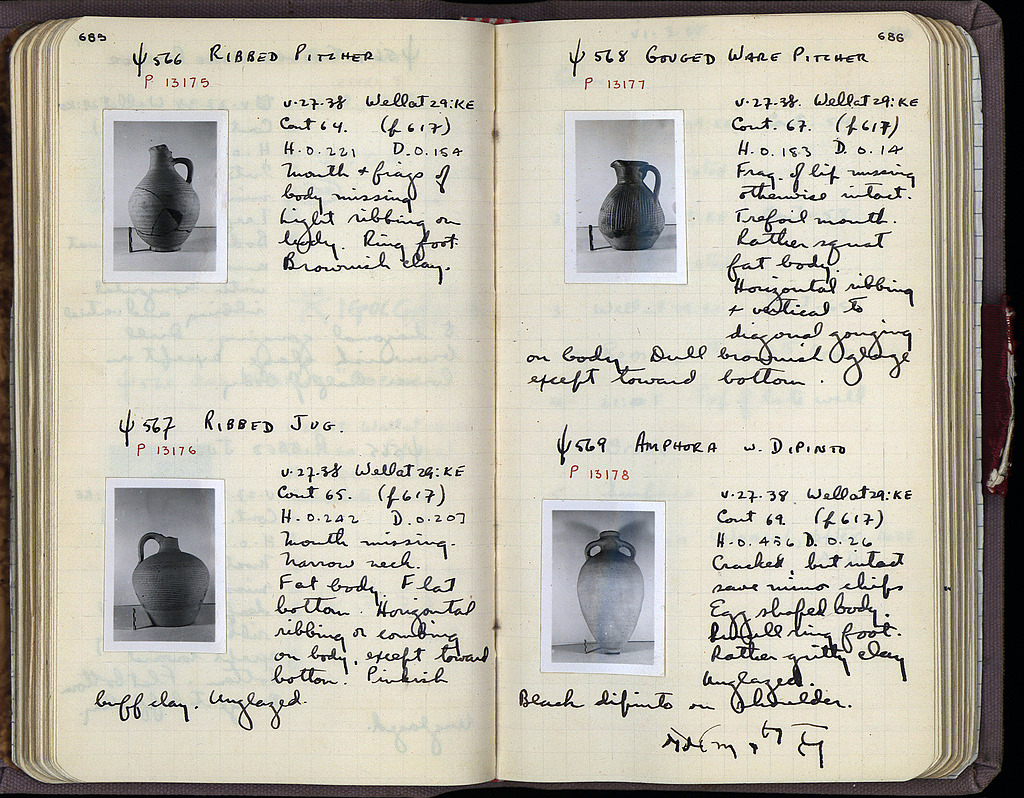 685
ψ 566 RIBBED PITCHER
P 13175
V-27-38 Well at 29:KE
Cont 64. (f 617)
H. 0.221 D. 0.154
Mouth + frags of
body missing
Light ribbing on
body. Ring foot.
Brownish clay.
ψ 567 RIBBED JUG.
P 13176
V-27-38 Well at 29:KE
Cont 65. (f 617)
H. 0.242 D. 0.207
Mouth missing.
Narrow neck.
Fat body. Flat
bottom. Horizontal
ribbing or combing
on body, except toward
bottom. Pinkish
buff clay. Unglazed.
686
ψ 568 GOUGED WARE PITCHER
P 13177
V-27-38. Well at 29:KE
Cont. 67. (f 617)
H. 0.183 D. 0.14
Frag. of lip missing
otherwise intact.
Trefoil mouth.
Rather squat
fat body.
Horizontal ribbing
+ vertical to
diagonal gouging
on body. Dull brownish glaze
except toward bottom.
ψ 569 AMPHORA W. DIPINTO
P 13178
V-27-38. Well at 29:KE
Cont 69 (f 617)
H. 0.456 D. 0.26
Cracked, but intact
save minor chips
Egg shaped body.
ring foot.
Rather gritty clay
Unglazed.
Black dipinto on shoulder.